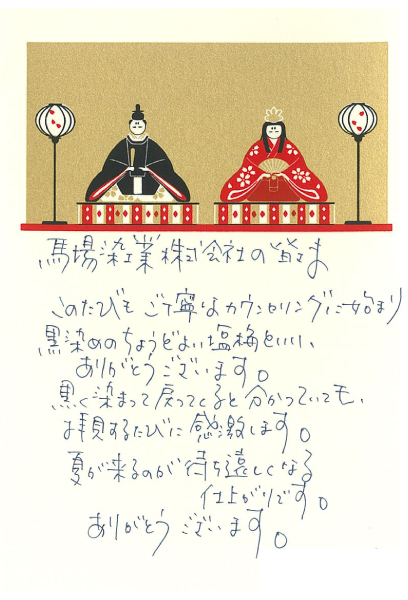 馬場染工業株式会社の皆さま
このたびもご丁寧なカウンセリングに始まり
黒染めのちょうどよい塩梅といい、
ありがとうございます。
黒く染まって戻ってくると分かっていても、
拝見するたびに感激します。
夏が来るのが待ち遠しくなる
仕上がりです。
ありがとうございます。